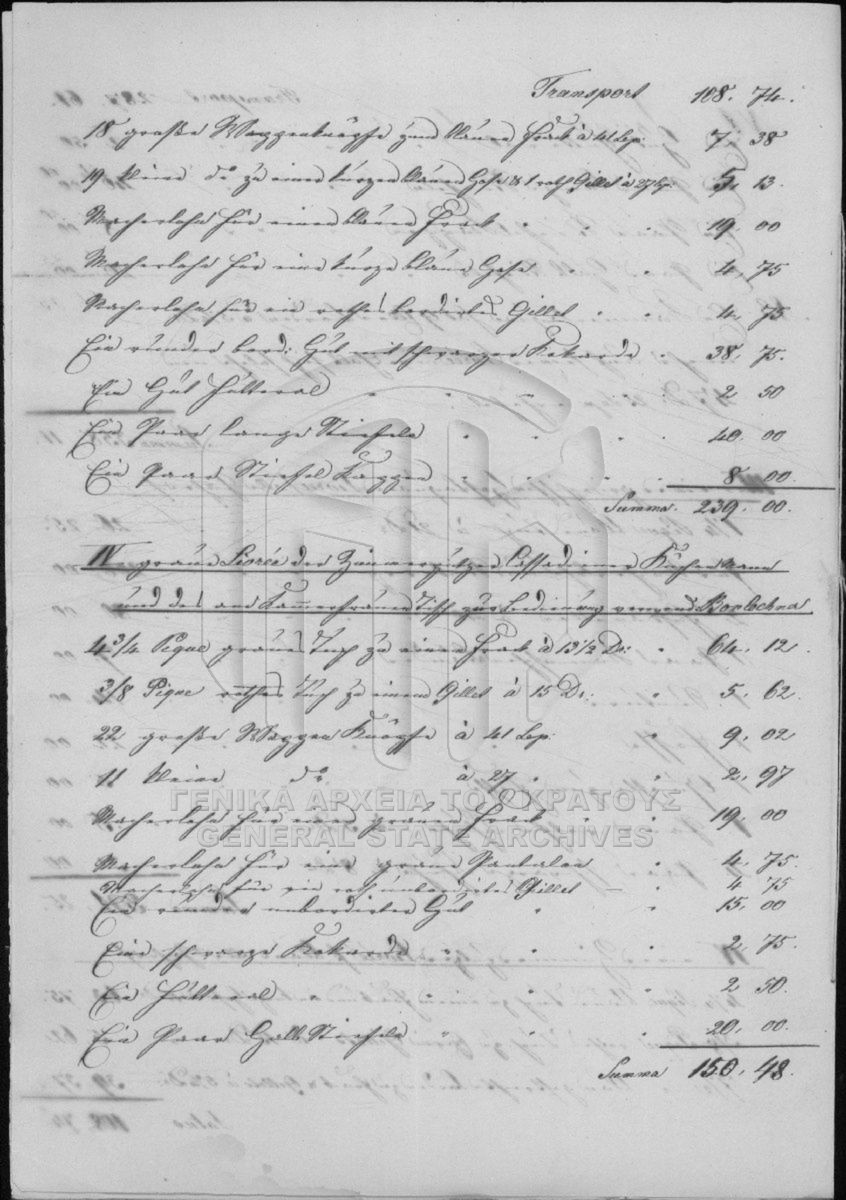 Transport 108. 74.
18 große Wappenknöpfe zum blauen Frack à 41 Lep: 7. 38
19 kleine do zu einer kurzen blauen Hose & 1 roth Gillet à 27 Lp. 5. 13.
Macherlohn für einen blauen Frack " " 19. 00
Macherlohn für eine kurze blaue Hose " " 4. 75
Macherlohn für ein rothes bordirtes Gillet " " 4. 75
Ein runder bord: Hut mit schwarzer Kokarde " 38. 75.
Ein Hut Futteral " " " " 2 50
Ein Paar lange Stiefeln " " " " 40. 00
Ein Paar Stiefel Kappen " " " " 8. 00.
Summa. 239. 00.
IV graue Livrée der Zimmerputzer Küchen
und des Kammerfrauen Tisch zur Bedienung
4 3/4 Pique graues Tuch zu einem Frack à 13 1/2 Dr: " 64. 12.
3/8 Pique rothes Tuch zu einem Gillet à 15 Dr: " 5. 62.
22 große Wappen Knöpfe à 41 Lep: " 9. 02
11 kleine do à 27 " " 2. 97
Macherlohn für einen grauen Frack " " 19. 00
Macherlohn für eine graue Pantalon " 4. 75.
Macherlohn für ein roth unbordirtes Gillet — " 4 75
Ein runder unbordirter Hut " " 15. 00
Eine schwarze Kokarde " " " 2. 75.
Ein Futteral " " " " 2 50.
Ein Paar Halb Stiefeln " " " 20. 00.
Summa 150. 48.
ΓΕΝΙΚΑ ΑΡΧΕΙΑ ΤΟΥ ΚΡΑΤΟΥΣ
GENERAL STATE ARCHIVES